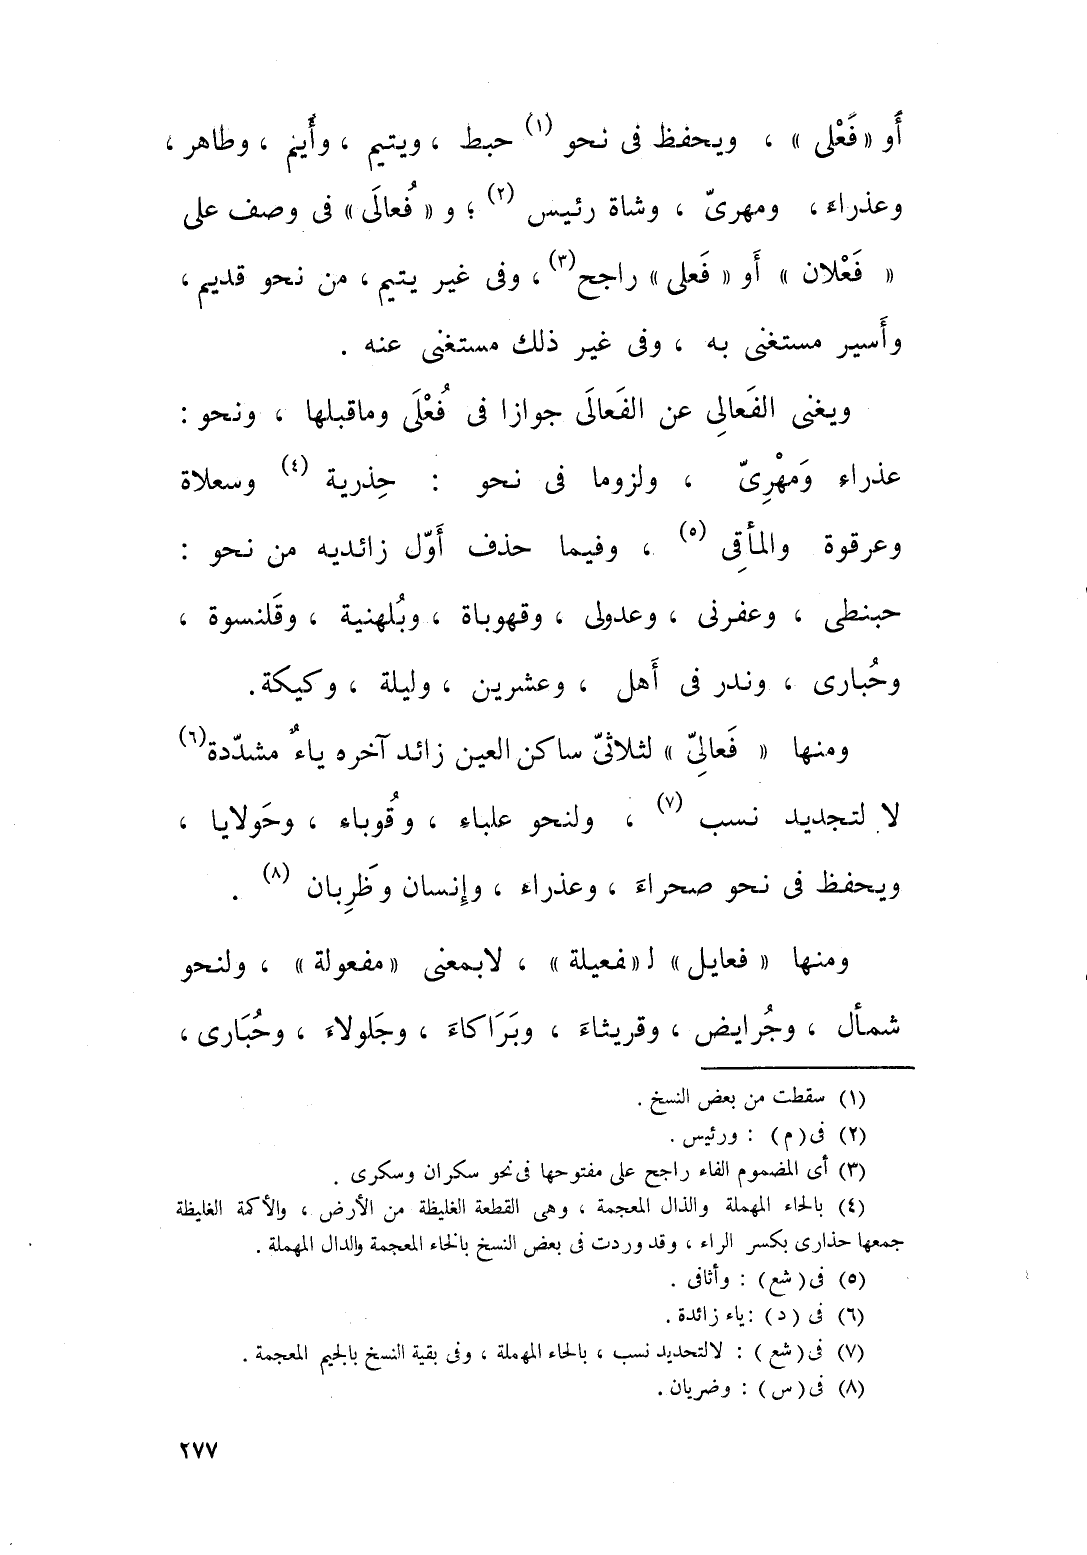 أَو « فَعْلى » ، ويحفظ فى نحو (١) حبط ، ويتيم ، وأَيم ، وطاهر ،
وعذراءَ ، ومهرىّ ، وشاة رئيس (٢) ؛ و « فُعالَى » فى وصف على
« فَعْلان » أَو « فَعلى » راجح (٣) ، وفى غير يتيم ، من نحو قديم ،
وأَسير مستغنى به ، وفى غير ذلك مستغنى عنه .
ويغنى الفَعالِى عن الفَعالَى جوازا فى فُعْلَى وماقبلها ، ونحو :
عذراء وَمهْرِىّ ، ولزوما فى نحو : حِذرية (٤) وسعلاة
وعرقوة والمأقِى (٥) ، وفيما حذف أَوّل زائديه من نحو :
حبنطى ، وعفرنى ، وعدولى ، وقهوباة ، وبُلهنية ، وقَلنسوة ،
وحُبارى ، وندر فى أَهل ، وعشرين ، وليلة ، وكيكة .
ومنها « فَعالِىّ » لثلاثىّ ساكن العين زائد آخره ياءٌ مشدّدة (٦)
لا لتجديد نسب (٧) ، ولنحو علباء ، وقُوباء ، وحَولايا ،
ويحفظ فى نحو صحراءَ ، وعذراء ، وإنسان وظَرِبان (٨) .
ومنها « فعايل » لـ «فعيلة» ، لابمعنى «مفعولة» ، ولنحو
شمأل ، وجُرايض ، وقريثاءَ ، وبَرَاكاءَ ، وجَلولاءَ ، وحُبَارى ،
(١) سقطت من بعض النسخ .
(٢) فى ( م ) : ورئيس .
(٣) أى المضموم الفاء راجح على مفتوحها فى نحو سكران وسكرى .
(٤) بالحاء المهملة والذال المعجمة ، وهى القطعة الغليظة من الأرض ، والأكمة الغليظة
جمعها حذارى بكسر الراء ، وقد وردت فى بعض النسخ بالخاء المعجمة والدال المهملة .
(٥) فى ( شع ) : وأثافى .
(٦) فى ( د ) : ياء زائدة .
(٧) فى ( شع ) : لالتحديد نسب ، بالحاء المهملة ، وفى بقية النسخ بالجيم المعجمة .
(٨) فى ( س ) : وضربان .
٢٧٧